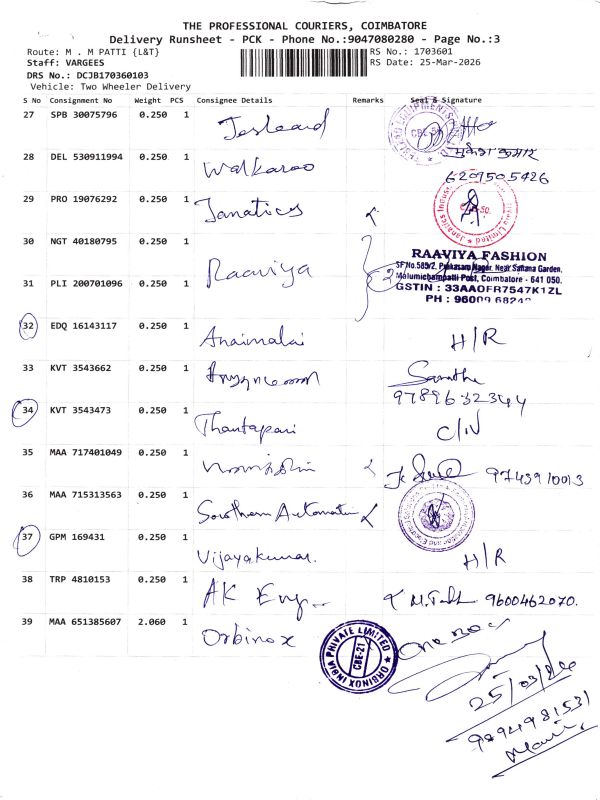 THE PROFESSIONAL COURIERS, COIMBATORE
Delivery Runsheet - PCK - Phone No.:9047080280 - Page No.:3
Route: M . M PATTI {L&T} RS No.: 1703601
Staff: VARGEES RS Date: 25-Mar-2026
DRS No.: DCJB170360103
Vehicle: Two Wheeler Delivery
S No Consignment No Weight PCS Consignee Details Remarks Seal & Signature
27 SPB 30075796 0.250 1
28 DEL 530911994 0.250 1 Walkaroo
6209505426
29 PRO 19076292 0.250 1 Janatics
30 NGT 40180795 0.250 1 Raaviya
RAAVIYA FASHION
SF No.585/2, Near Sahana Garden,
Post, Coimbatore - 641 050.
GSTIN : 33AAOFR7547K1ZL
PH : 96009 68242
31 PLI 200701096 0.250 1
32 EDQ 16143117 0.250 1 Anaimalai H/R
33 KVT 3543662 0.250 1
9789632344
34 KVT 3543473 0.250 1 Thantapani
35 MAA 717401049 0.250 1 9743910013
36 MAA 715313563 0.250 1 Southern
37 GPM 169431 0.250 1 Vijayakumar. H/R
38 TRP 4810153 0.250 1 AK Eng 9600462070.
39 MAA 651385607 2.060 1 Orbinox
ORBINOX INDIA PRIVATE LIMITED
CBE-21
One Box
25/03/26
9894981531